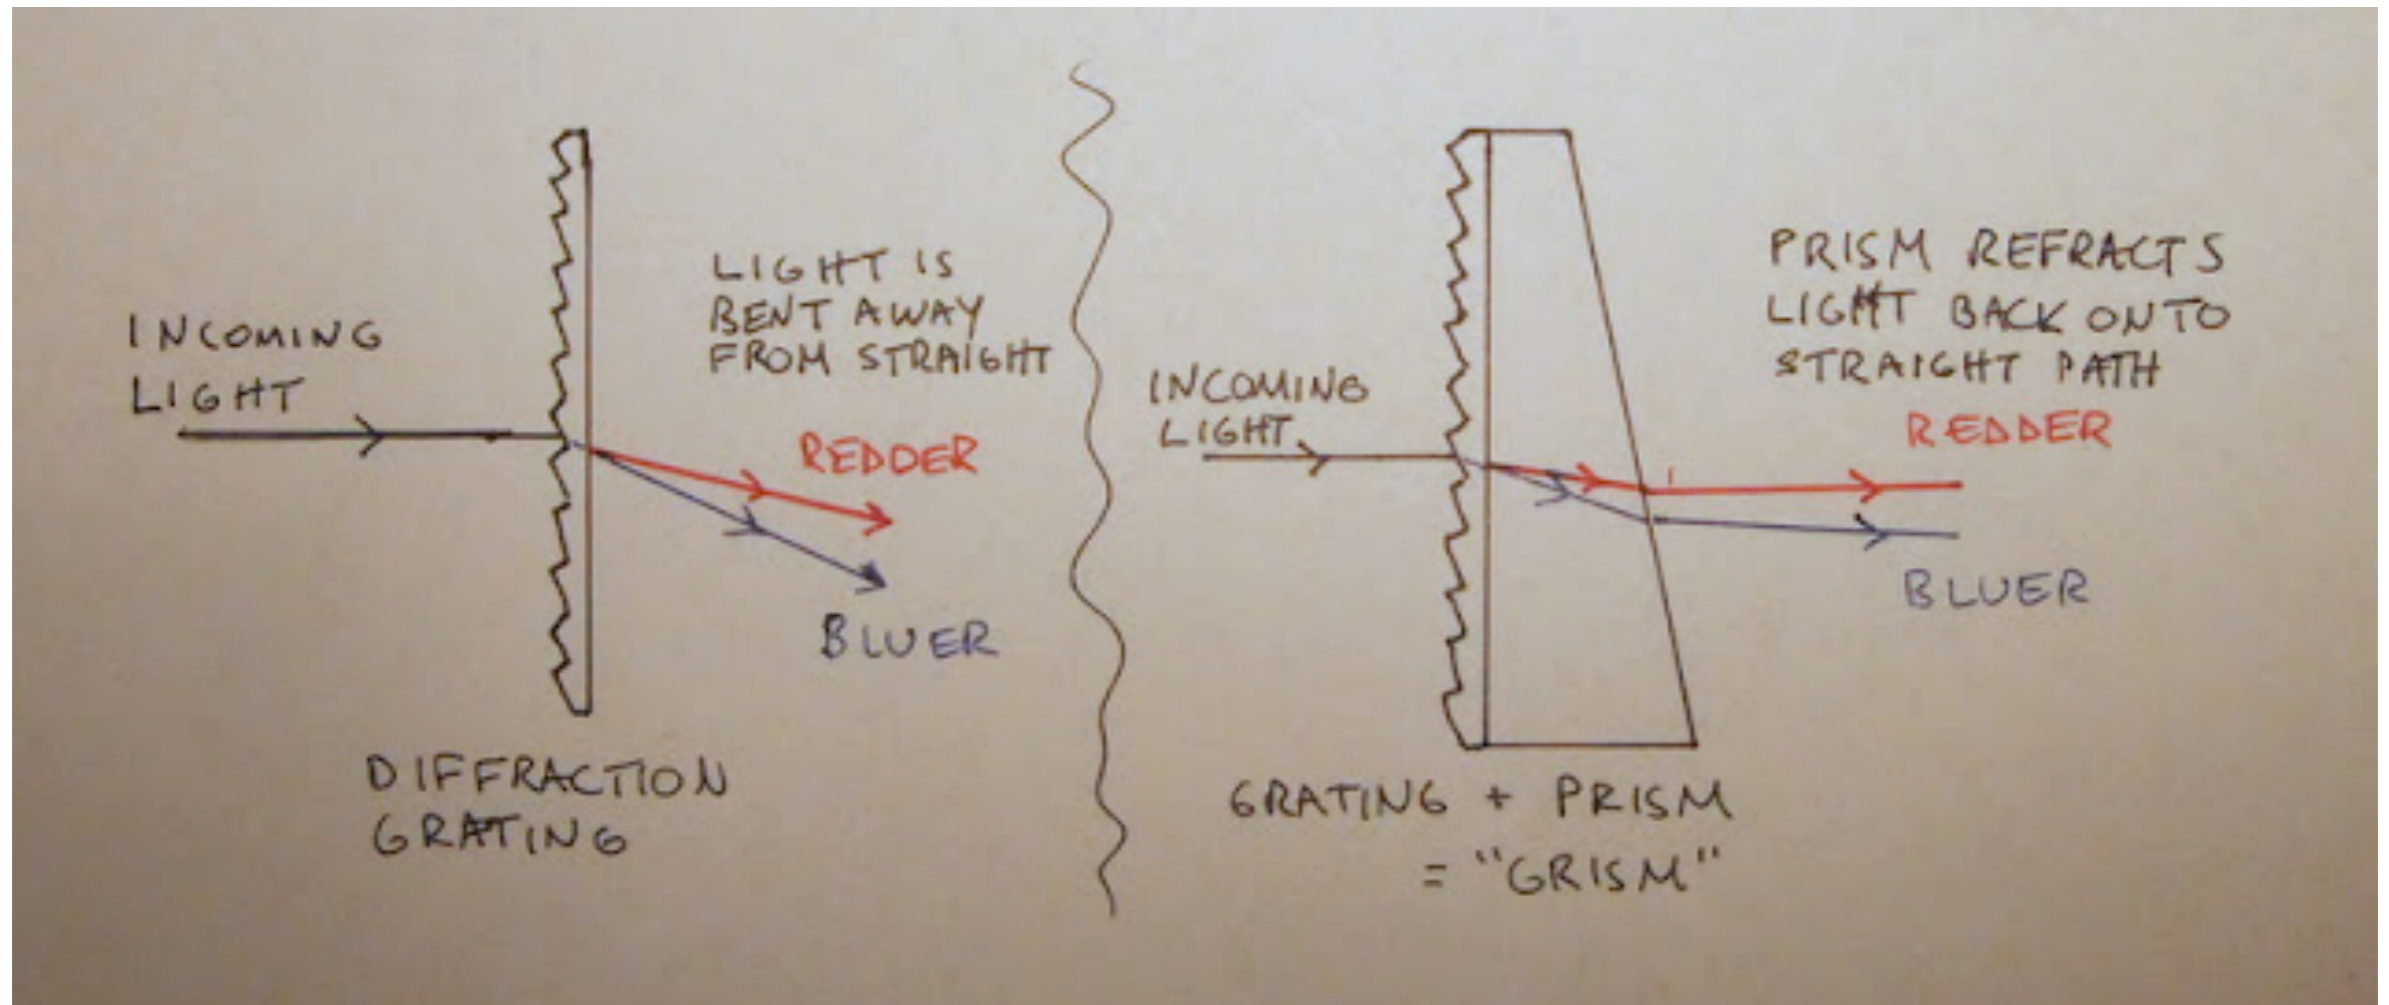 INCOMING
LIGHT
LIGHT IS
BENT AWAY
FROM STRAIGHT
REDDER
BLUER
DIFFRACTION
GRATING
PRISM REFRACTS
LIGHT BACK ONTO
STRAIGHT PATH
INCOMING
LIGHT
REDDER
BLUER
GRATING + PRISM
= "GRISM"